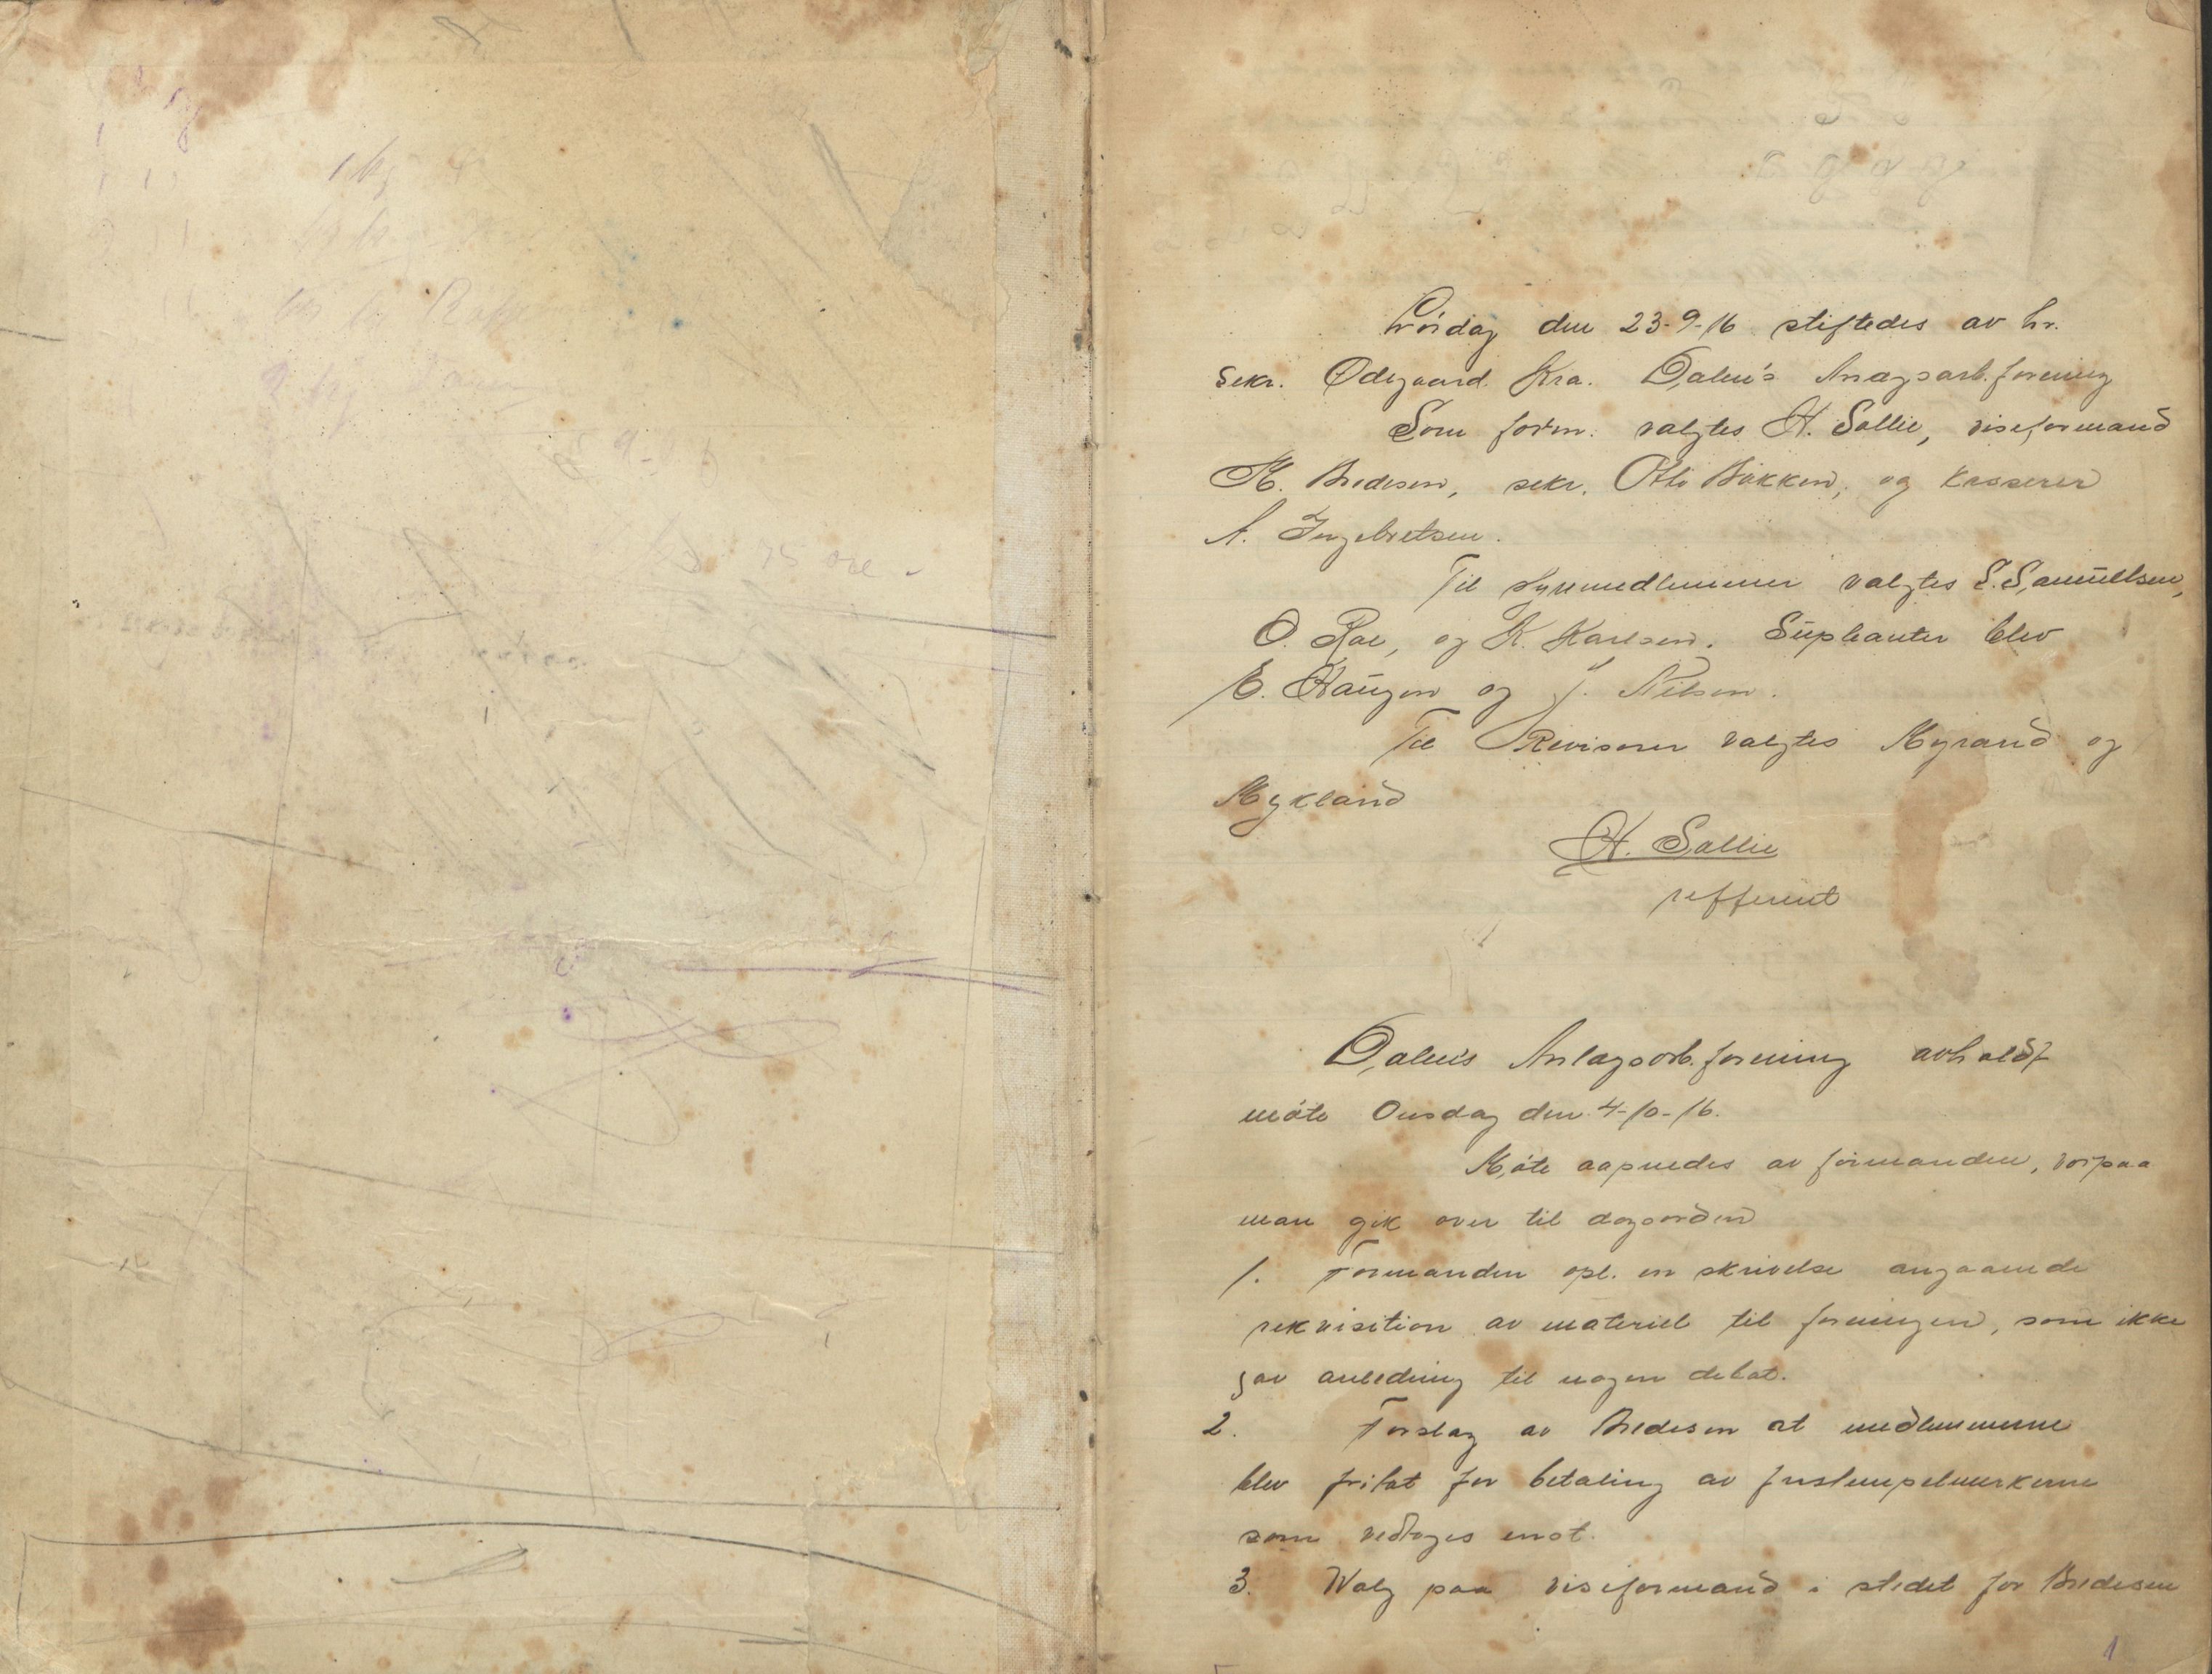 1 kg
75 øre
Lördag den 23-9-16 stiftedes av hr.
sekr. Ødegaard Kra. Dalen's Anlægsarb.forening
Som form. valgtes H. Sollie, viseformand
K. Bredesen, sekr. Otto Bakken, og kasserer
A. Ingebretsen.
Til styremedlemmer valgtes S. Samuelsen,
O. Roe, og K. Karlsen. Supleanter blev
E. Haugen og J. Nilsen.
Til Revisorer valgtes Myrand og
Mykland
H. Sollie
refferent
Dalen's Anlægsarb.forening avholdt
möte Onsdag den 4-10-16.
Möte aapnedes av formanden, vorpaa
man gik over til dagsorden
1. Formanden opl. en skrivelse angaaende
rekvisition av materiel til foreningen, som ikke
gav anledning til nogen debat.
2. Forslag av Bredesen at medlemmerne
blev fritat for betaling av
som vedtoges enst.
3. Valg paa viseformand i stedet for Bredesen
1